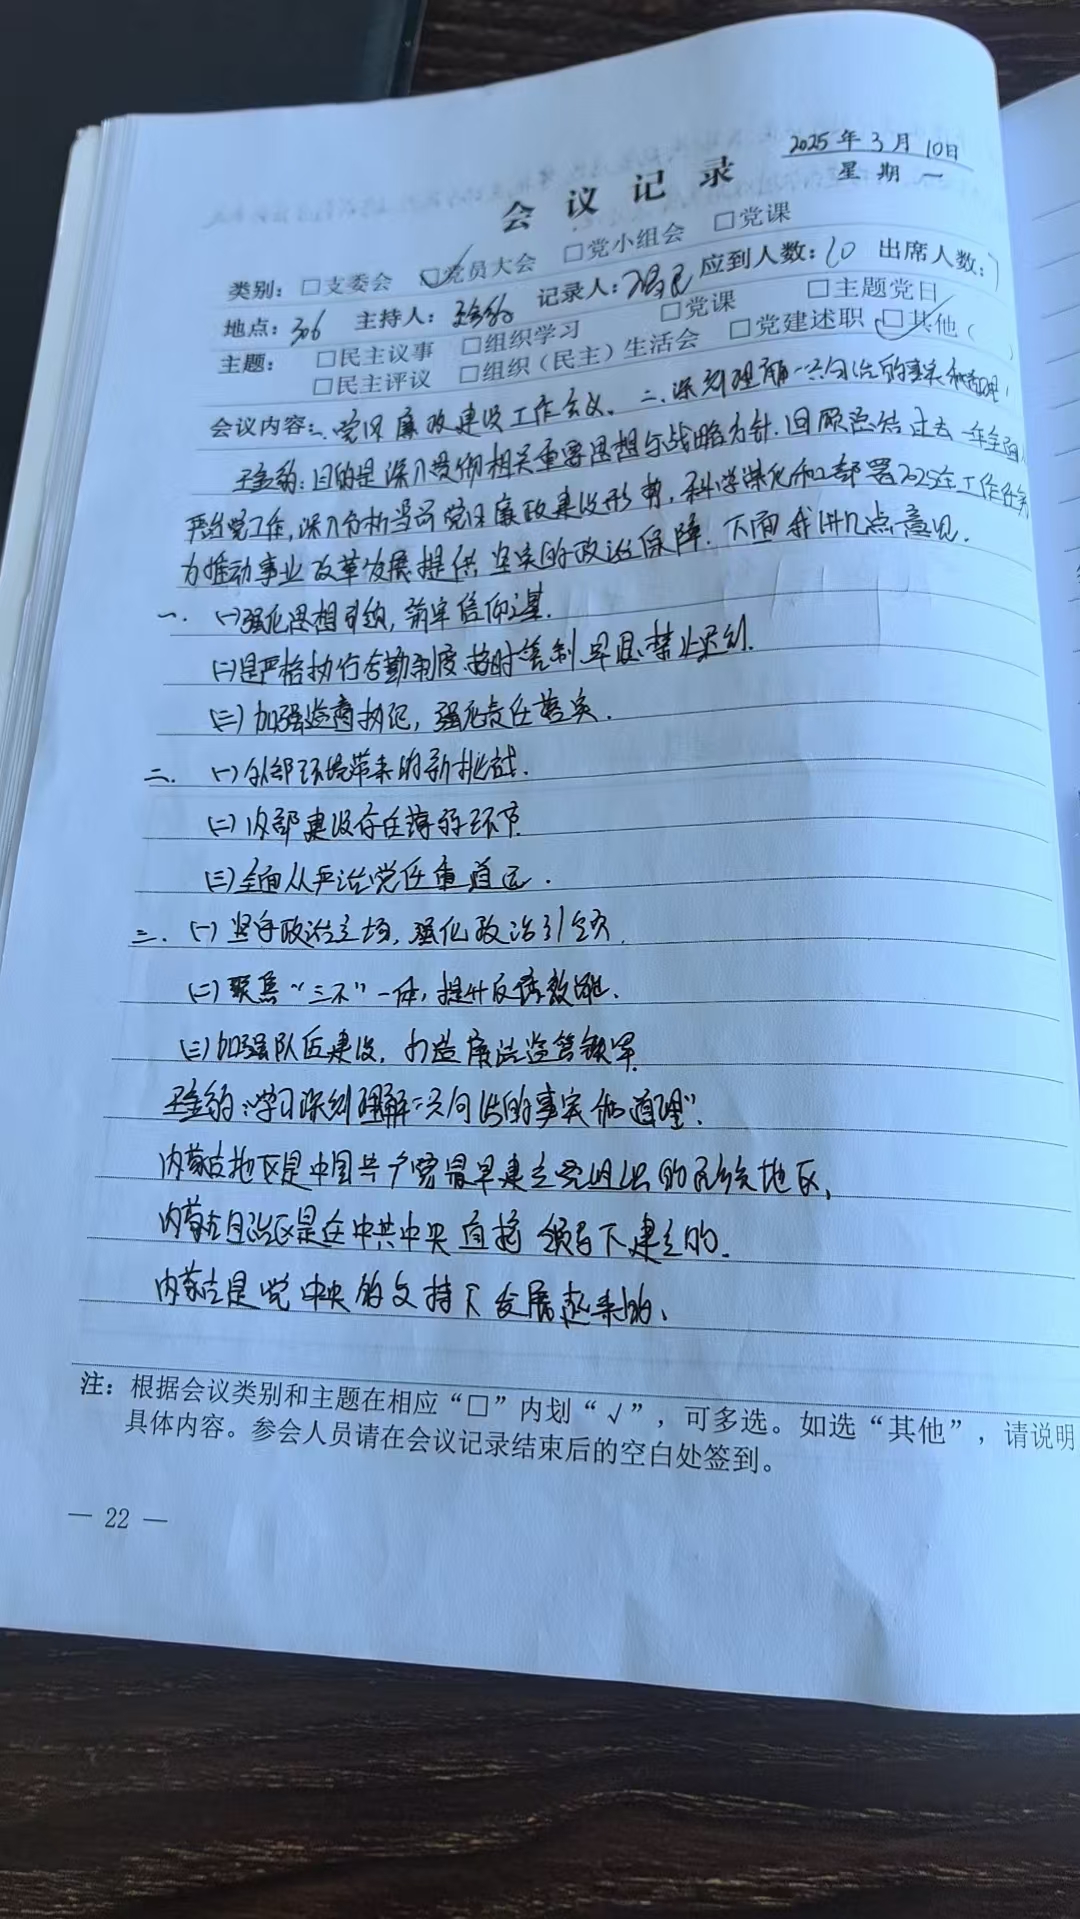 2025年3月10日
星期一
会议记录
类别：□支委会 □党员大会 □党小组会 □党课
地点：306 主持人： 记录人： 应到人数：10 出席人数：7
主题：□民主议事 □组织学习 □党课 □主题党日
□民主评议 □组织（民主）生活会 □党建述职 □其他（ ）
会议内容：一、党风廉政建设工作会议、二、深刻理解的事实和道理
目的是深入贯彻相关重要思想与战略方针.回顾总结过去一年全面从
严治党工作,深入分析当前党风廉政建设形势,科学谋化和部署2025年工作任务
为推动事业改革发展提供坚实的政治保障.下面我讲几点意见.
一.(一)强化思想引领,筑牢信仰之基.
(二)是严格执行考勤制度.按时签到,早退.禁止迟到.
(三)加强监督执纪,强化责任落实.
二.(一)外部环境带来的新挑战.
(二)内部建设存在薄弱环节
(三)全面从严治党任重道远.
三.(一)坚守政治立场,强化政治引领.
(二)聚焦“三不”一体,提升反腐效能.
(三)加强队伍建设,打造廉洁监管铁军.
“学习深刻理解的事实和道理”.
内蒙古地区是中国共产党最早建立党组织的民族地区,
内蒙古自治区是在中共中央直接领导下建立的.
内蒙古是党中央的支持下发展起来的.
注：根据会议类别和主题在相应“□”内划“√”，可多选。如选“其他”，请说明
具体内容。参会人员请在会议记录结束后的空白处签到。
— 22 —